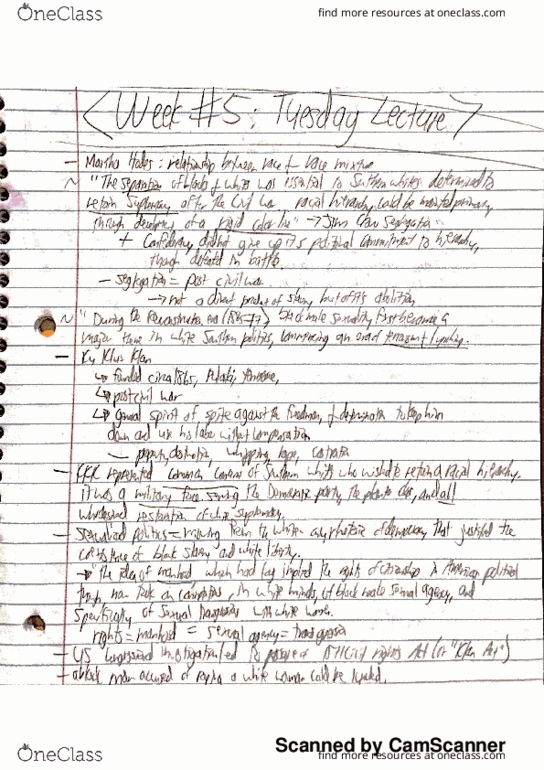 OneClass
find more resources at oneclass.com
<Week #5: Tuesday Lecture>
- Martha Hodes: relationship between race + race mixture
~ "The separation of blacks + whites was essential to Southern whites determined to
retain Supremacy after the Civil war racial hierarchy could be maintained primarily
through developing of a rigid color line" → Jim Crow Segregation
+ Confederacy did not give up its political commitment to hierarchy,
though defeated in battle
- segregation = post civil war
→ not a direct product of slavery but of its abolition
~ "During the Reconstruction era (1865-77), black male sexuality first became a
major theme in white Southern politics, commencing an era of terrorism + lynching.
- Ku Klux Klan
↳ founded circa 1865, Pulaski Tennessee,
↳ post civil war
↳ general spirit of spite against the freedman, + determination to keep him
down and use his labor without compensation
- property destruction, whipping, rape, castration
- KKK represented common concerns of Southern whites who wished to retain a racial hierarchy.
it was a military force serving the Democratic party, the planter class, and all
who desired restoration of white supremacy
- sexualized politics = the white rhetoric of democracy that justified the
coexistence of black slavery and white liberty.
→ "the idea of manhood, which had long implied the rights of citizenship in American political
thought, now took on connotations, in white minds, of black male sexual agency, and
specifically of sexual transgressions with white women.
rights = manhood = sexual agency = transgression
- US congressional investigation led to passage of Civil rights Act (or "Klan Act")
- a black man accused of raping a white woman could be lynched.
Scanned by CamScanner
OneClass
find more resources at oneclass.com